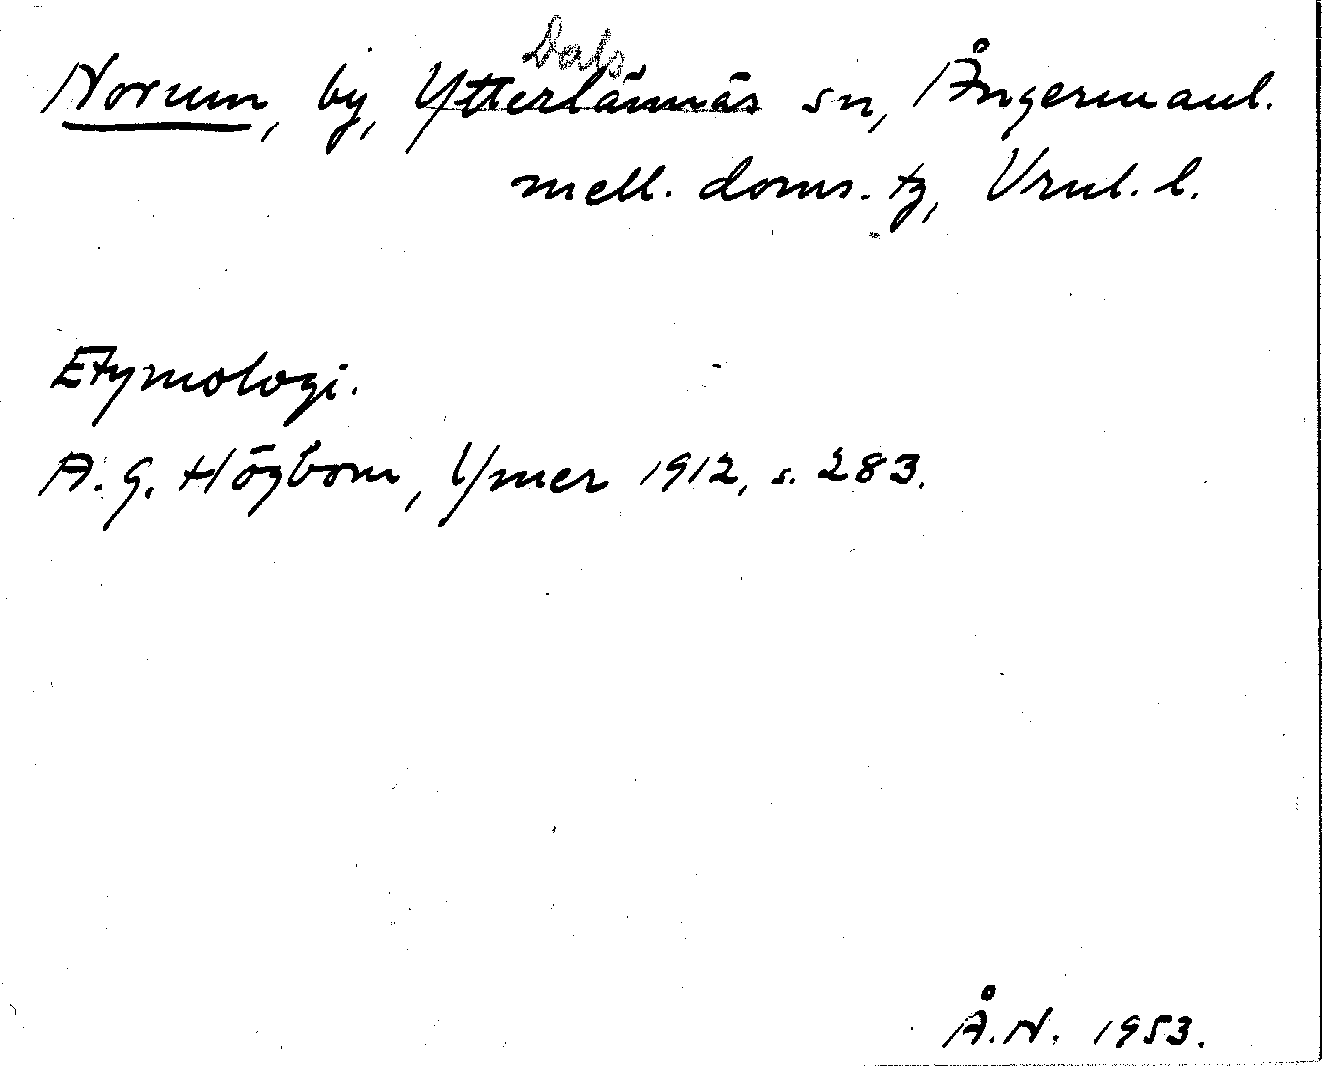 Dals
Norum, by, Ytterlännäs sn, Ångermanl.
mell. doms. tg, Vnl. l.
Etymologi.
A. G. Högbom, Ymer 1912, s. 283.
Å. N. 1953.